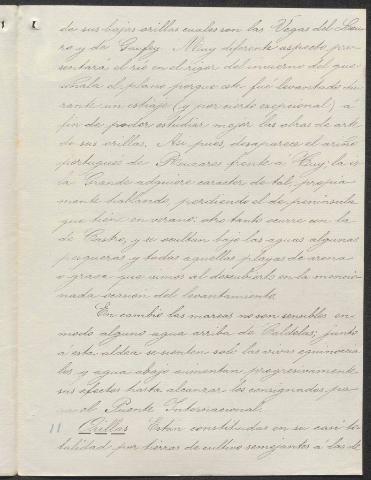 de sus bajas orillas cuales son las Vegas del Lou-
ro y de Ganfey. Muy diferente aspecto pre-
sentará el río en el rigor del invierno del que
señala el plano porque este fué levantado du-
rante un estiaje (y por cierto excepcional) á
fin de poder estudiar mejor las obras de arte
de sus orillas. Así pues, desaparece el
portugués de frente a Tuy; la is-
la Grande adquiere carácter de tal, propia
mente hablando, perdiendo el de península
que tién en verano: otro tanto ocurre con la
de Castro, y se ocultan bajo las aguas algunas
pesqueras y todas aquellas playas de arena
o grava que vimos al descubierto en la mencio-
nada ocasión del levantamiento.
En cambio las mareas no son sensibles en
modo alguno agua arriba de Caldelas; junto
a esta aldea se sienten solo las vivas equinoccia-
les, y agua abajo aumentan progresivamente
sus efectos hasta alcanzar los consignados pa-
ra el Puente Internacional.
11 Orillas Están constituidas en su casi to-
talidad por tierras de cultivo semejantes á las de